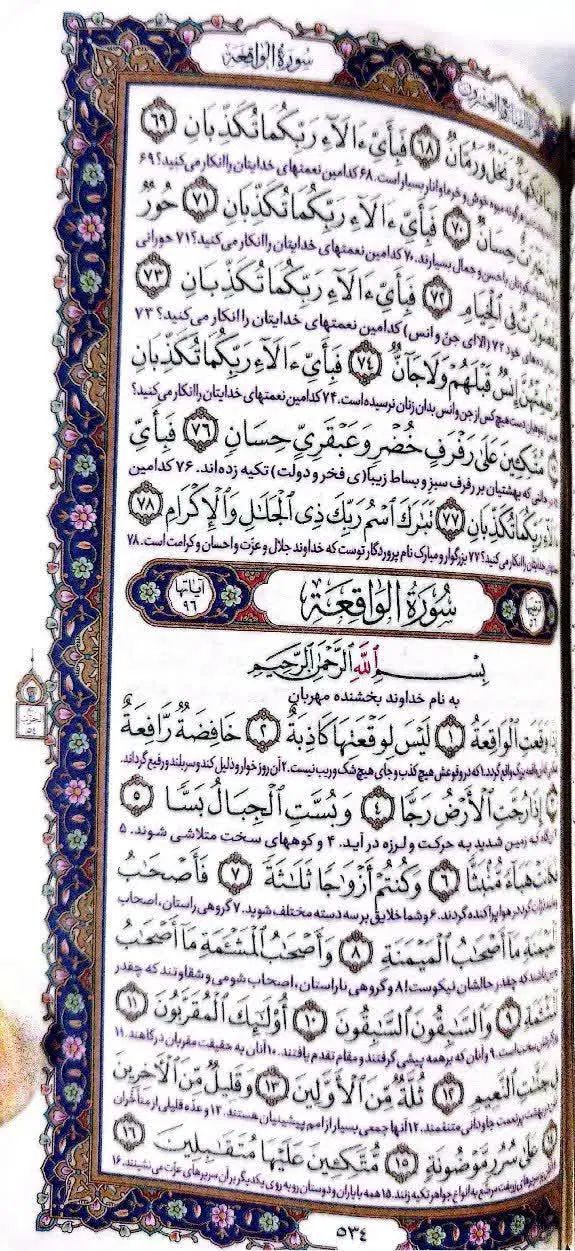 سُورَةُ الوَاقِعَة
وَنَخْلٌ وَرُمَّانٌ ﴿٦٨﴾ فَبِأَيِّ ءَالَآءِ رَبِّكُمَا تُكَذِّبَانِ ﴿٦٩﴾
میوه خوش و خرما و انار بسیار است. ۶۸ کدامین نعمتهای خدایتان را انکار می‌کنید؟ ۶۹
حِسَانٌ ﴿٧٠﴾ فَبِأَيِّ ءَالَآءِ رَبِّكُمَا تُكَذِّبَانِ ﴿٧١﴾ حُورٌ
با حسن و جمال بسیارند. ۷۰ کدامین نعمتهای خدایتان را انکار می‌کنید؟ ۷۱ حورانی
فِي الْخِيَامِ ﴿٧٢﴾ فَبِأَيِّ ءَالَآءِ رَبِّكُمَا تُكَذِّبَانِ ﴿٧٣﴾
خود ۷۲ (الا ای جن و انس) کدامین نعمتهای خدایتان را انکار می‌کنید؟ ۷۳
إِنسٌ قَبْلَهُمْ وَلَا جَآنٌّ ﴿٧٤﴾ فَبِأَيِّ ءَالَآءِ رَبِّكُمَا تُكَذِّبَانِ
دست هیچ کس از جن و انس بدان زنان نرسیده است. ۷۴ کدامین نعمتهای خدایتان را انکار می‌کنید؟
مُتَّكِئِينَ عَلَى رَفْرَفٍ خُضْرٍ وَعَبْقَرِيٍّ حِسَانٍ ﴿٧٦﴾ فَبِأَيِّ
که بهشتیان بر رفرف سبز و بساط زیبا(ی فخر و دولت) تکیه زده‌اند. ۷۶ کدامین
رَبِّكُمَا تُكَذِّبَانِ ﴿٧٧﴾ تَبَٰرَكَ اسْمُ رَبِّكَ ذِي الْجَلَٰلِ وَالْإِكْرَامِ ﴿٧٨﴾
را انکار می‌کنید؟ ۷۷ بزرگوار و مبارک نام پروردگار توست که خداوند جلال و عزت و احسان و کرامت است. ۷۸
سُورَةُ الوَاقِعَة
آیاتها
۹۶
بِسْمِ اللَّهِ الرَّحْمَٰنِ الرَّحِيمِ
به نام خداوند بخشنده مهربان
إِذَا وَقَعَتِ الْوَاقِعَةُ ﴿١﴾ لَيْسَ لِوَقْعَتِهَا كَاذِبَةٌ ﴿٢﴾ خَافِضَةٌ رَّافِعَةٌ
واقع گردد. ۱ که در وقوعش هیچ کذب و جای هیچ شک و ریب نیست. ۲ آن روز خوار و ذلیل کند و سربلند و رفیع گرداند.
إِذَا رُجَّتِ الْأَرْضُ رَجًّا ﴿٤﴾ وَبُسَّتِ الْجِبَالُ بَسًّا ﴿٥﴾
که زمین شدید به حرکت و لرزه در آید. ۴ و کوههای سخت متلاشی شوند. ۵
هَبَآءً مُّنۢبَثًّا ﴿٦﴾ وَكُنتُمْ أَزْوَٰجًا ثَلَٰثَةً ﴿٧﴾ فَأَصْحَٰبُ
در هوا پراکنده گردند. ۶ و شما خلایق بر سه دسته مختلف شوید. ۷ گروهی راستان، اصحاب
الْمَيْمَنَةِ مَآ أَصْحَٰبُ الْمَيْمَنَةِ ﴿٨﴾ وَأَصْحَٰبُ الْمَشْـَٔمَةِ مَآ أَصْحَٰبُ
که چقدر حالشان نیکوست! ۸ و گروهی ناراستان، اصحاب شومی و شقاوتند که چقدر
الْمَشْـَٔمَةِ ﴿٩﴾ وَالسَّٰبِقُونَ السَّٰبِقُونَ ﴿١٠﴾ أُولَٰٓئِكَ الْمُقَرَّبُونَ ﴿١١﴾
سخت است. ۹ و آنان که بر همه پیشی گرفتند و مقام تقدم یافتند. ۱۰ آنان به حقیقت مقربان درگاهند. ۱۱
فِي جَنَّٰتِ النَّعِيمِ ﴿١٢﴾ ثُلَّةٌ مِّنَ الْأَوَّلِينَ ﴿١٣﴾ وَقَلِيلٌ مِّنَ الْأٓخِرِينَ
بهشت پرنعمت جاودانی متنعمند. ۱۲ آنها جمعی بسیار از امم پیشینیان هستند. ۱۳ و عده قلیلی از متأخران
عَلَىٰ سُرُرٍ مَّوْضُونَةٍ ﴿١٥﴾ مُّتَّكِـِٔينَ عَلَيْهَا مُتَقَٰبِلِينَ ﴿١٦﴾
مرصع به انواع جواهر تکیه زنند. ۱۵ همه با یاران و دوستان رو به روی یکدیگر بر آن سریرهای عزت می‌نشینند. ۱۶
۵۳۴